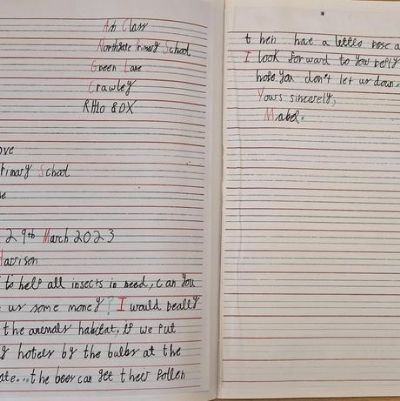 Ash Class
Northgate Primary School
Green Lane
Crawley
RH10 8DX
ove
Primary School
se
29th March 2023
Harrison
to help all insects in need, can you
us some money? I would really
the animals habitat, If we put
g hotels by the bulbs at the
ate...the bees can get their Pollen
then have a little nose a
I look forward to you reply
hope you don't let us down.
Yours sincerely,
Mabel